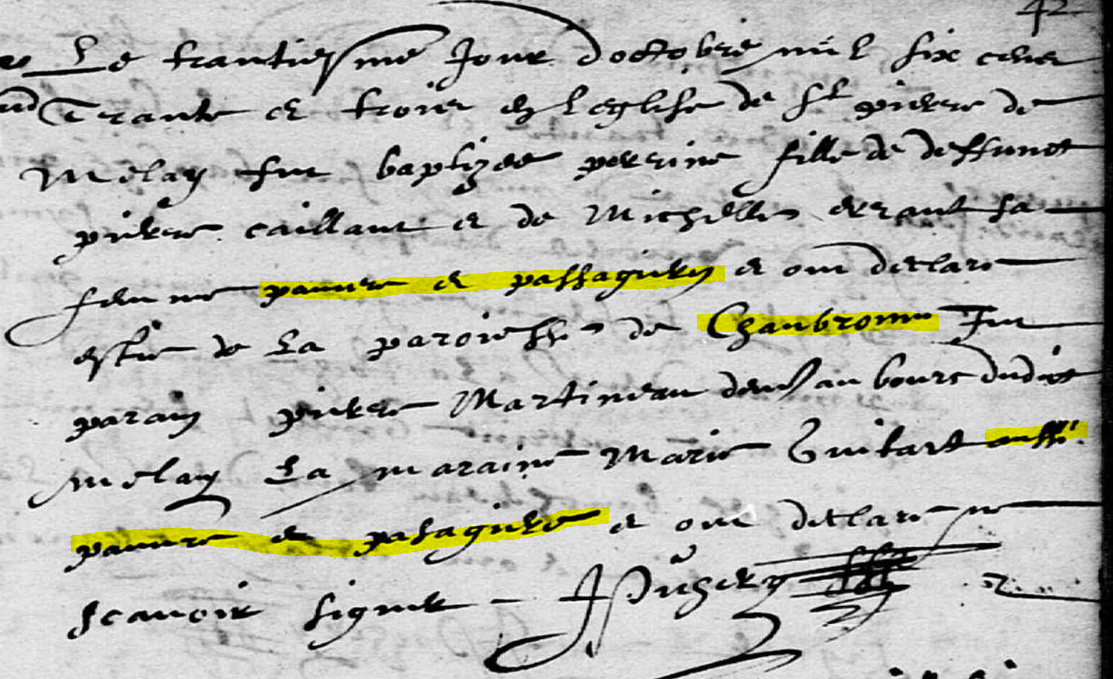 42
Le trantiesme Jour doctobre mil six cens
Trante et trois en leglise de St pierre de
Melay fut baptizée perrine fille de deffunct
pierre caillaut et de Michelle errant sa
femme pauvre et passagiere et ont declaré
estre de la paroisse de Chanbronne fut
parain pierre Martineau demt au bourc dudict
melay la maraine Marie Guitart aussi
pauvre et pasagiere et ont declaré ne
scavoir signer